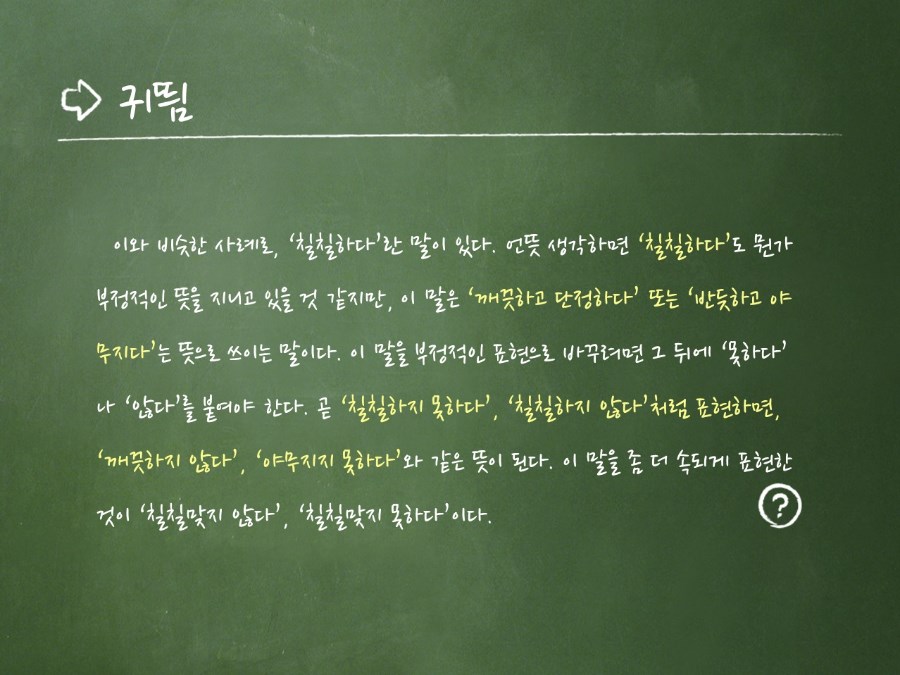 귀띔
이와 비슷한 사례로, ‘칠칠하다’란 말이 있다. 언뜻 생각하면 ‘칠칠하다’도 뭔가
부정적인 뜻을 지니고 있을 것 같지만, 이 말은 ‘깨끗하고 단정하다’ 또는 ‘반듯하고 야
무지다’는 뜻으로 쓰이는 말이다. 이 말을 부정적인 표현으로 바꾸려면 그 뒤에 ‘못하다’
나 ‘않다’를 붙여야 한다. 곧 ‘칠칠하지 못하다’, ‘칠칠하지 않다’처럼 표현하면,
‘깨끗하지 않다’, ‘야무지지 못하다’와 같은 뜻이 된다. 이 말을 좀 더 속되게 표현한
것이 ‘칠칠맞지 않다’, ‘칠칠맞지 못하다’이다.
?